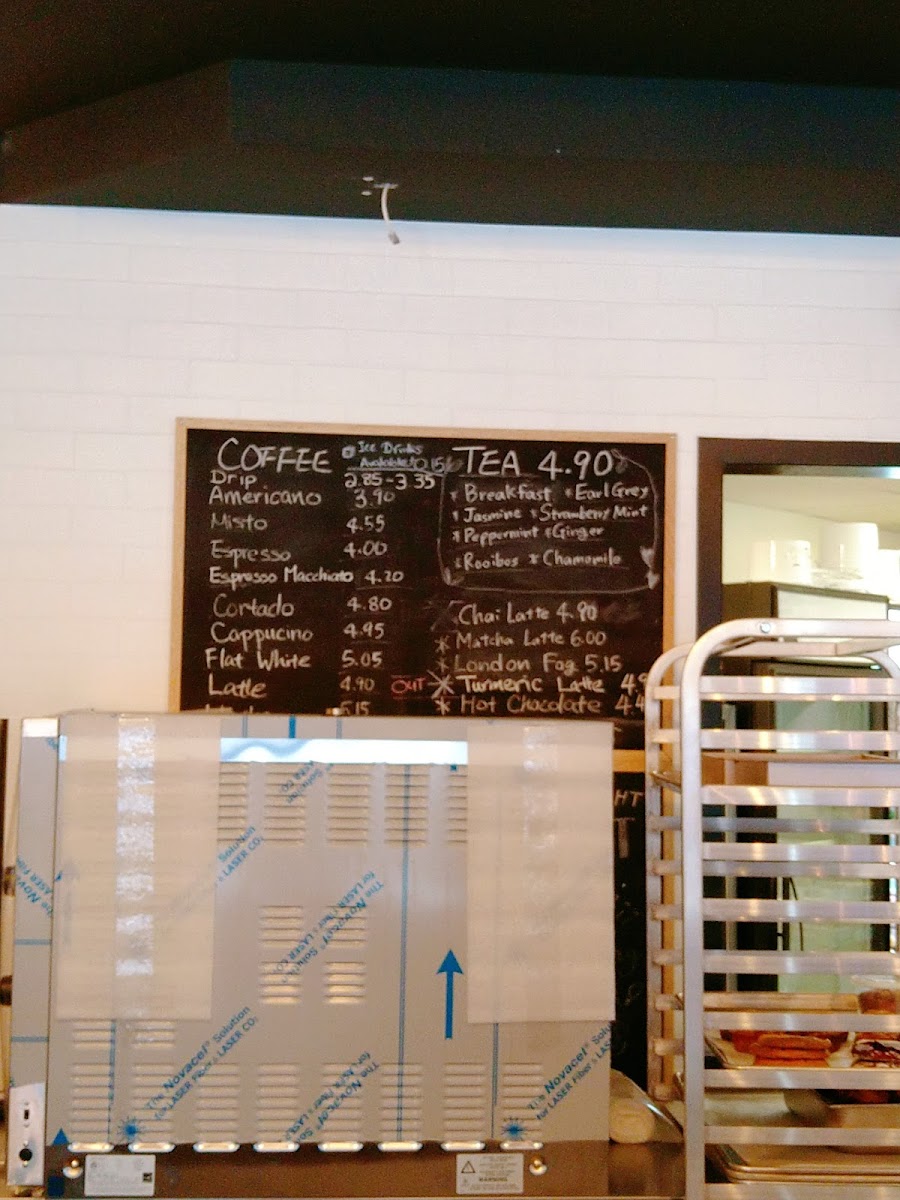 COFFEE
Ice Drinks
Available! 0.15
Drip 2.85-3.35
Americano 3.90
Misto 4.55
Espresso 4.00
Espresso Macchiato 4.20
Cortado 4.80
Cappucino 4.95
Flat White 5.05
Latte 4.90
5.15
TEA 4.90
* Breakfast * Earl Grey
* Jasmine * Strawberry Mint
* Peppermint * Ginger
* Rooibos * Chamomile
Chai Latte 4.90
* Matcha Latte 6.00
* London Fog 5.15
OUT * Turmeric Latte 4.9
* Hot Chocolate 4.4
HT
T
The Novacel® Solution
for LASER Fiber & LASER CO₂
The Novacel® Solution
for LASER Fiber & LASER CO₂
The Novacel® Solution
for LASER Fiber & LAS
WARNING